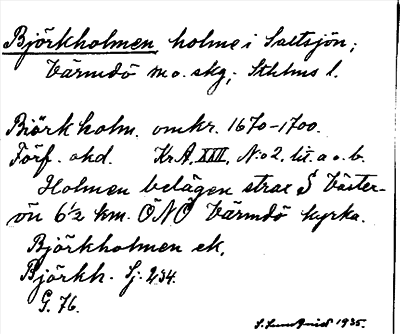 Björkholmen, holme i Saltsjön;
Värmdö m.o. skg; Sthlms l.
Björkholm. omkr. 1670-1700.
Förf. okd. Kr.A, XXII, N:o 2. lit. a o. b.
Holmen belägen strax S Väster-
ön 6½ km. ÖNÖ Värmdö kyrka.
Björkholmen ek,
Björkh. Sj: 234.
G. 76.
1935.